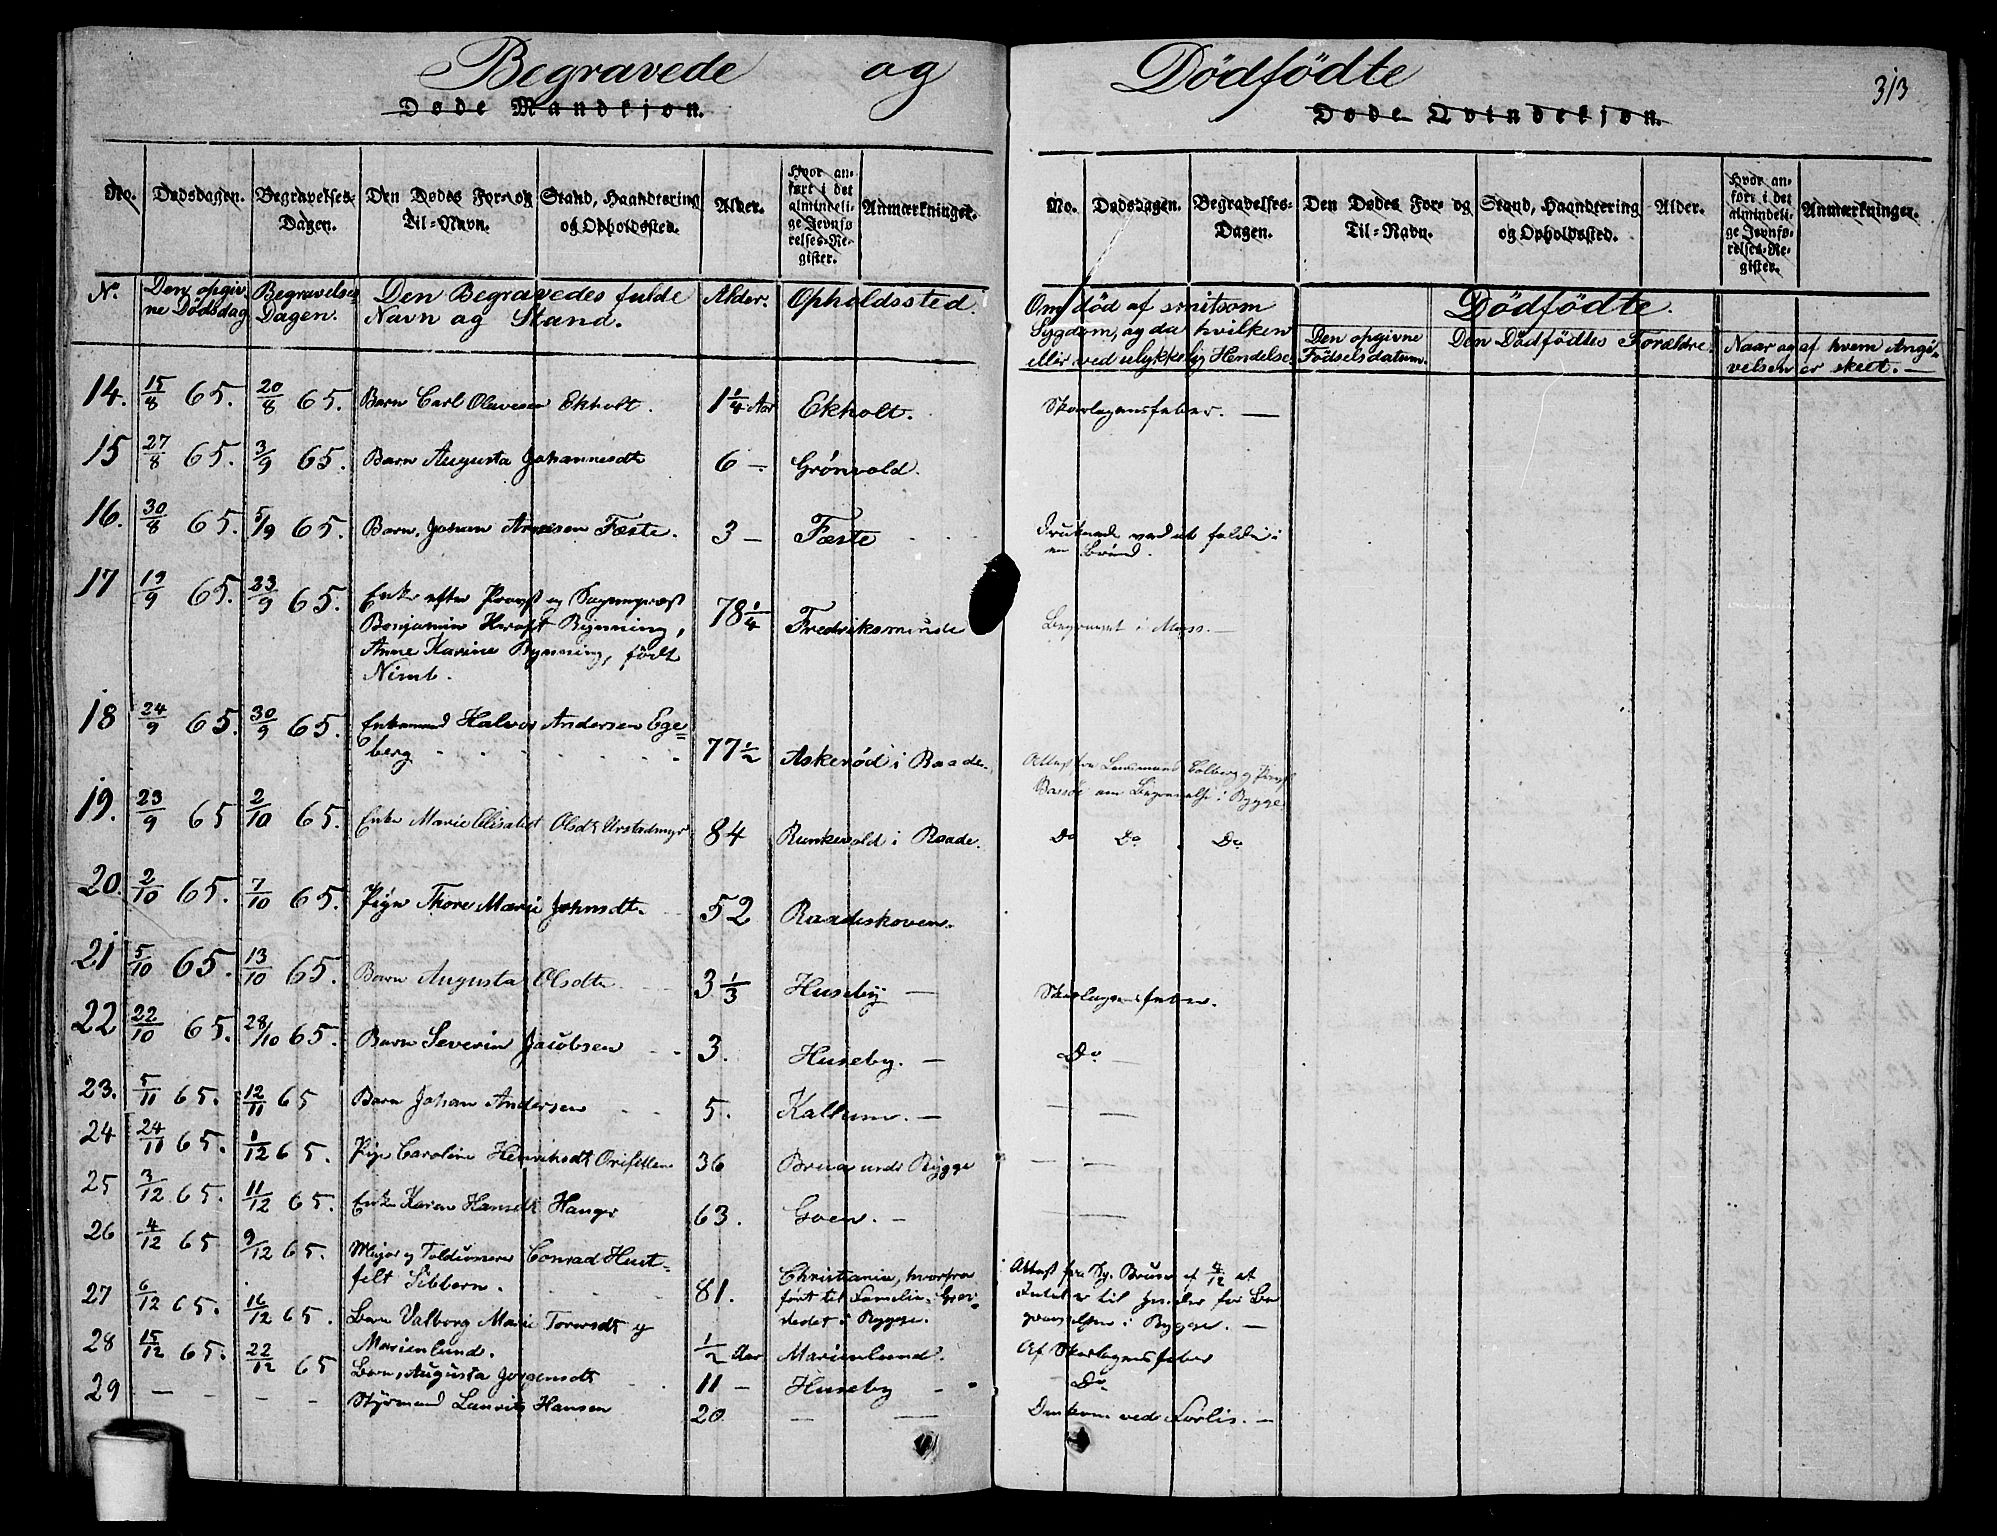 Begravede og Dödfödte
313
Døde Mandkjøn. Døde Qvindekjøn.
No. Dødsdagen. Begravelses-Dagen. Den Dødes For- og Til-Navn. Stand, Haandtering og Opholdssted. Alder. Hvor anført i det almindelige Jevnførelses-Register. Anmærkninger.
No. Dødsdagen. Begravelses-Dagen. Den Dødes For- og Til-Navn. Stand, Haandtering og Opholdssted. Alder. Hvor anført i det almindelige Jevnførelses-Register. Anmærkninger.
N. Den opgivne Dødsdag Begravelses Dagen. Den Begravedes fulde Navn og Stand. Alder. Opholdssted. Om död af smitsom Sygdom, og da hvilken eller ved ulykkelig Hendelse. Dödfödte. Den opgivne Födselsdatum. Den Dödfödtes Forældre. Naar og af hvem Angivelsen er skeet.
14. 15/8 65. 20/8 65. Barn Carl Olavesen Ekholt. 1 1/4 Aar Ekholt. Skarlagensfeber.
15 27/8 65. 3/9 65. Barn Augusta Johannesdt 6 - Grönvold.
16. 30/8 65. 5/9 65. Barn Johan Arnesen Fæste. 3 - Fæste Druknede ved at falde i
en Brönd.
17 19/9 65. 23/9 65. Enke efter Provst og Sognepræst
Benjamin Hersft Bynning, 78 1/4 Fredriksminde Begravet i Moss.
Anne Karine Bynning, födt
Nimb.
18 24/9 65. 30/9 65. Enkemand Halvor Andersen Ege=
berg 77 1/2 Askeröd i Raade. Attest fra Lensmand Colberg og Provst
Bassöe om Begravelse i Rygge
19. 23/9 65 2/10 65. Enke Marie Elisabet Olsdt 84 Runkevold i Raade. Do Do Do
20. 2/10 65. 7/10 65. Pige Thore Marie Johnsdt. 52 Raadeskoven.
21 5/10 65. 13/10 65. Barn Augusta Olsdt 3 1/3 Huseby - Skarlagensfeber.
22 22/10 65. 28/10 65. Barn Severin Jacobsen 3. Huseby. - Do
23. 5/11 65. 12/11 65 Barn Johan Andersen 5. Kallum. -
24 24/11 65. 1/12 65. Pige Caroline Henriksdt 36 Brua under Rygge
25 3/12 65. 11/12 65. Enke Karen Hansdt Hauger 63. Goen. -
26 4/12 65 9/12 65. Major og Toldinspector Conrad Huit=
felt Sibbern. 81. Christiania, hvorfra
fört til Familie-Grav=
stedet i Rygge. Attest fra Sp. Bruun af 4/12 at
Intet er til Hinder for Be
gravelsen i Rygge. -
27 6/12 65. 16/12 65. Barn Valborg Marie
Marienlund. 1/2 Aar Marienlund. Af Skarlagensfeber
28 15/12 65. 22/12 65 Barn Augusta Jörgensdt 11 - Huseby - Do
29 - - - - Styrmand Laurits Hansen 20 - - Omkom ved Forlis. -